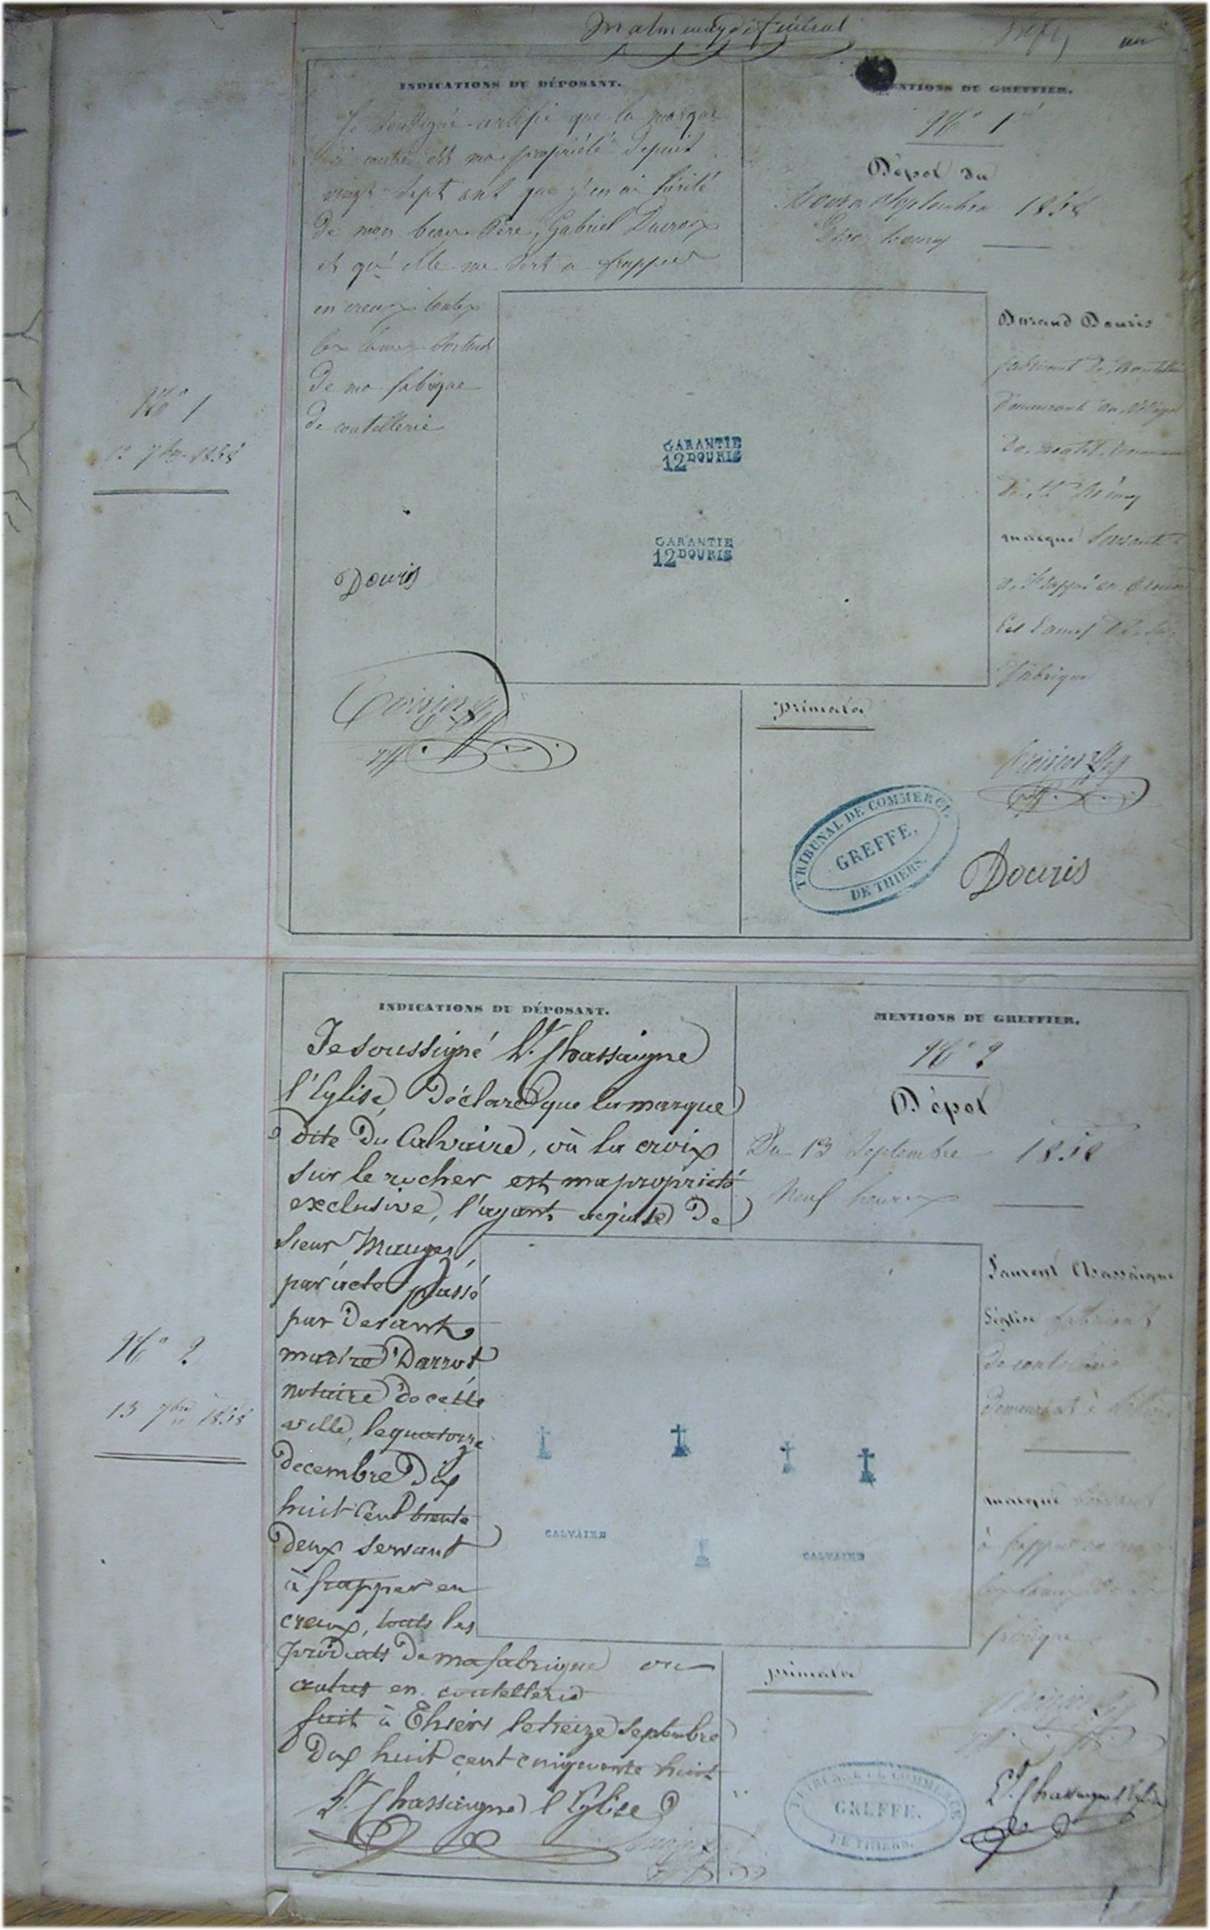 N° 1
12 7bre 1858
INDICATIONS DU DÉPOSANT.
Je soussigné certifie que la marque
ci contre est ma propriété depuis
vingt-sept ans que j'en ai hérité
de mon beau Père, Gabriel
et qu'elle me sert a frapper
en creux toutes
les lames
de ma fabrique
de coutellerie
Douris
MENTIONS DU GREFFIER.
N° 1
Dépot du
Septembre 1858
GARANTIE
12 DOURIS
GARANTIE
12 DOURIS
Durand Douris
fabricant de
demeurant au village
de
de St Rémy
marque servant
a frapper en creux
les lames de sa
fabrique
primata
TRIBUNAL DE COMMERCE
GREFFE.
DE THIERS.
Douris
N° 2
13 7bre 1858
INDICATIONS DU DÉPOSANT.
Je soussigné Lt. Chassaigne
l'Eglise, Déclare que la marque
dite du Calvaire, où la croix
sur le rocher est ma propriété
exclusive, l'ayant acquise de
sieur
par acte passé
par devant
maitre Darrot
notaire de cette
ville, le quatorze
decembre Dix
huit cent trente
deux servant
à frapper en
creux, touts les
produits de ma fabrique ou
autres en coutellerie
fait à Thiers le treize Septembre
Dix huit cent cinquante huit
Lt. Chassaigne l'Eglise
MENTIONS DU GREFFIER.
N° 2
Dépot
Du 13 Septembre 1858
Neuf heures
CALVAIRE
CALVAIRE
Laurent Chassaigne
l'église fabricant
de coutellerie
demeurant à
marque servant
à frapper en
les lames de sa
fabrique
primata
TRIBUNAL DE COMMERCE
GREFFE.
DE THIERS.
Lt. Chassaigne l'Eglise